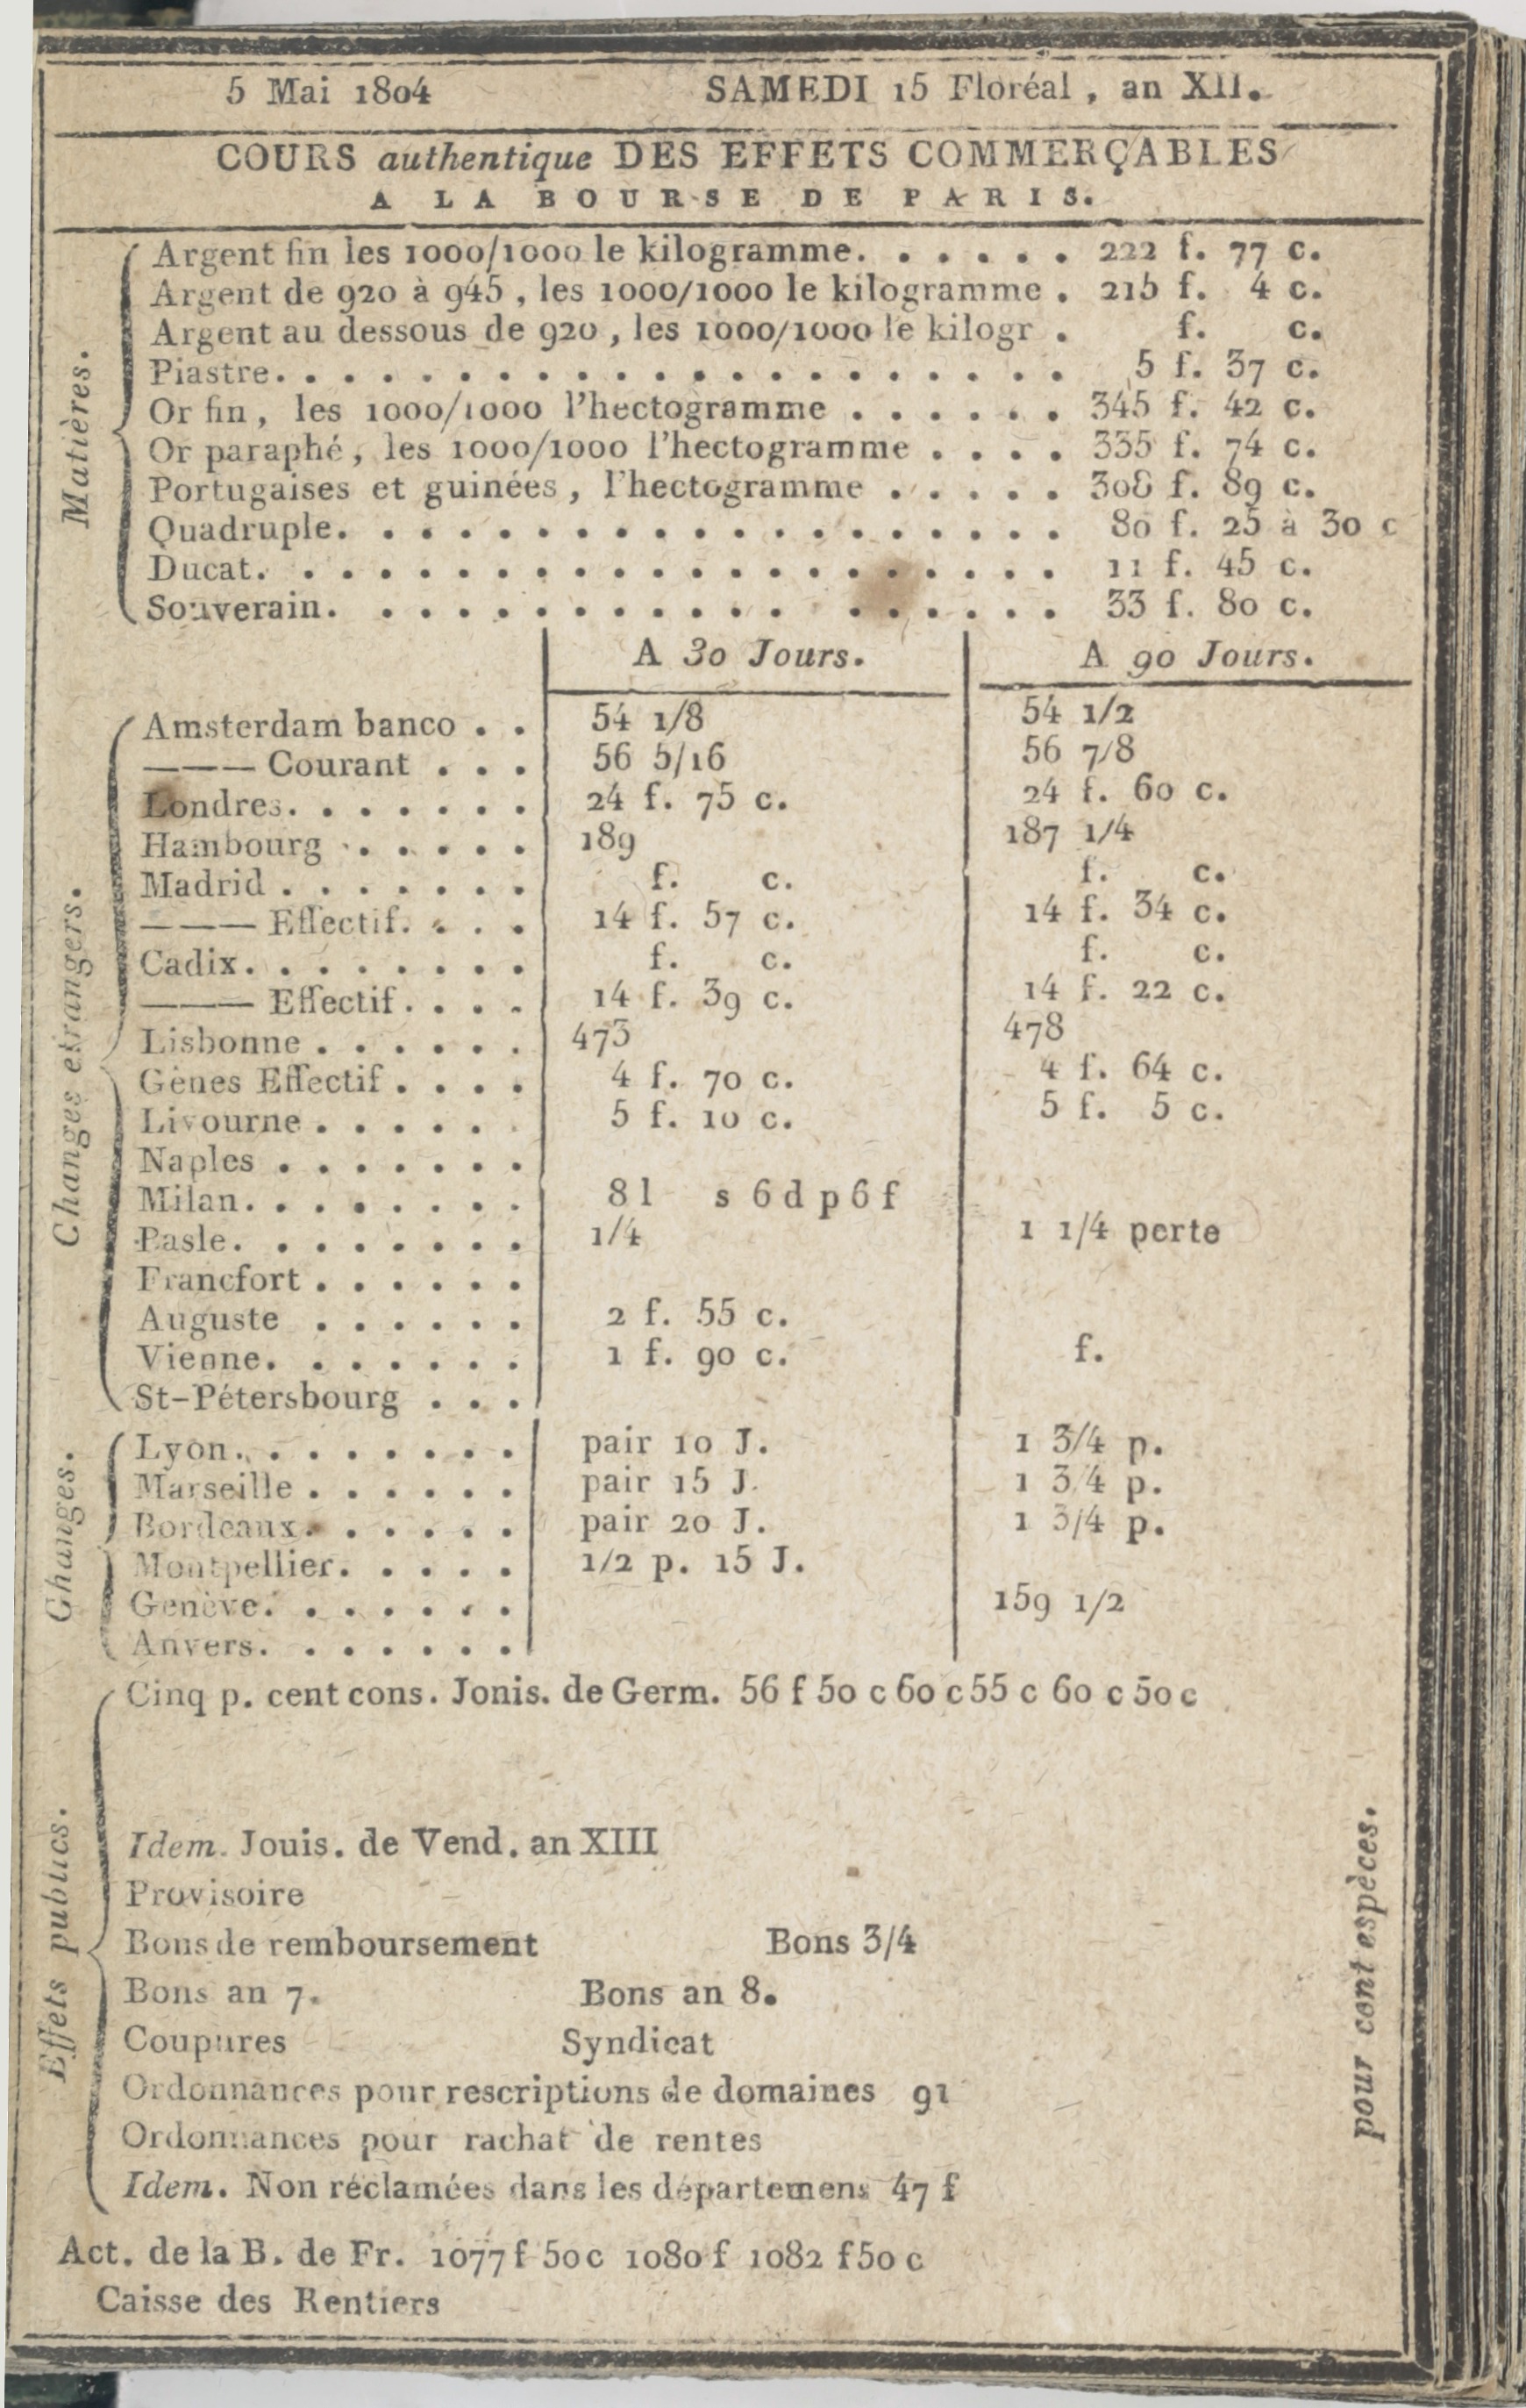 5 Mai 1804 SAMEDI 15 Floréal, an XII.
COURS authentique DES EFFETS COMMERÇABLES
A LA BOURSE DE PARIS.
Matières.
Argent fin les 1000/1000 le kilogramme. . . . . . 222 f. 77 c.
Argent de 920 à 945, les 1000/1000 le kilogramme . 215 f. 4 c.
Argent au dessous de 920, les 1000/1000 le kilogr . f. c.
Piastre. . . . . . . . . . . . . . . . . . . . . 5 f. 37 c.
Or fin, les 1000/1000 l'hectogramme . . . . . . 345 f. 42 c.
Or paraphé, les 1000/1000 l'hectogramme . . . . 335 f. 74 c.
Portugaises et guinées, l'hectogramme . . . . . 308 f. 89 c.
Quadruple. . . . . . . . . . . . . . . . . . . 80 f. 25 à 30 c
Ducat. . . . . . . . . . . . . . . . . . . . . 11 f. 45 c.
Souverain. . . . . . . . . . . . . . . . . . 33 f. 80 c.
A 30 Jours. A 90 Jours.
Changes etrangers.
Amsterdam banco . . 54 1/8 54 1/2
——— Courant . . . 56 5/16 56 7/8
Londres. . . . . . . 24 f. 75 c. 24 f. 60 c.
Hambourg . . . . . 189 187 1/4
Madrid . . . . . . . f. c. f. c.
——— Effectif. . . . 14 f. 57 c. 14 f. 34 c.
Cadix. . . . . . . . f. c. f. c.
——— Effectif. . . . 14 f. 39 c. 14 f. 22 c.
Lisbonne . . . . . . 473 478
Gènes Effectif . . . . 4 f. 70 c. 4 f. 64 c.
Livourne . . . . . . 5 f. 10 c. 5 f. 5 c.
Naples . . . . . . .
Milan. . . . . . . . 8 l s 6 d p 6 f
Basle. . . . . . . . 1/4 1 1/4 perte
Francfort . . . . . .
Auguste . . . . . . 2 f. 55 c.
Vienne. . . . . . . 1 f. 90 c. f.
St-Pétersbourg . . .
Changes.
Lyon. . . . . . . . pair 10 J. 1 3/4 p.
Marseille . . . . . . pair 15 J. 1 3/4 p.
Bordeaux. . . . . . pair 20 J. 1 3/4 p.
Montpellier. . . . . 1/2 p. 15 J.
Genève. . . . . . . 159 1/2
Anvers. . . . . . .
Effets publics.
Cinq p. cent cons. Jonis. de Germ. 56 f 50 c 60 c 55 c 60 c 50 c
Idem. Jouis. de Vend. an XIII
Provisoire
Bons de remboursement Bons 3/4
Bons an 7. Bons an 8.
Coupures Syndicat
Ordonnances pour rescriptions de domaines 91
Ordonnances pour rachat de rentes
Idem. Non réclamées dans les départemens 47 f
pour cont espèces.
Act. de la B. de Fr. 1077 f 50 c 1080 f 1082 f 50 c
Caisse des Rentiers